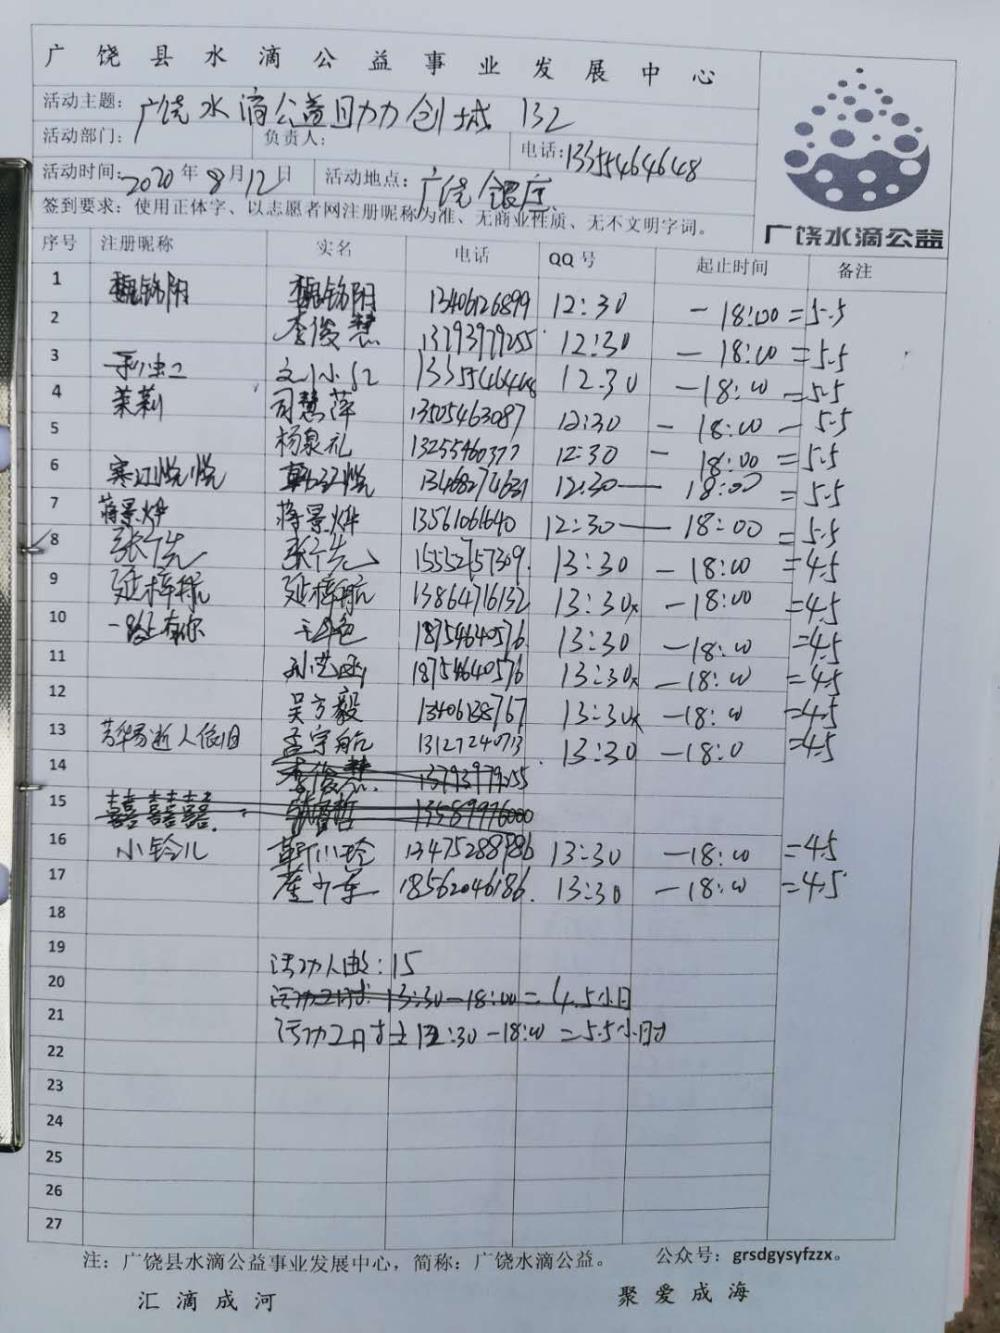 广饶县水滴公益事业发展中心
活动主题：广饶水滴公益助力创城 132
活动部门： 负责人： 电话：13355464648
活动时间：2020年8月12日 活动地点：广饶银座
签到要求：使用正体字、以志愿者网注册昵称为准、无商业性质、无不文明字词。
广饶水滴公益
序号 注册昵称 实名 电话 QQ号 起止时间 备注
1 魏铭阳 魏铭阳 13406126899 12:30 — 18:00 =5.5
2 李俊慧 13793979255 12:30 — 18:00 =5.5
3 12.30 — 18:00 =5.5
4 茉莉 司慧萍 13505463087 12:30 — 18:00 — 5.5
5 杨泉礼 13255460377 12:30 — 18:00 =5.5
6 寒江悦悦 13468274631 12:30 — 18:00 =5.5
7 蒋景烨 蒋景烨 13561061640 12:30 — 18:00 =5.5
8 15552757309. 13:30 — 18:00 =4.5
9 延梓航 延梓航 13864716132 13:30 — 18:00 =4.5
10 一路有你 18754640576 13:30 — 18:00 =4.5
11 18754640576 13:30 — 18:00 =4.5
12 吴方毅 13406138767 13:30 — 18:00 =4.5
13 孟宇航 13127240713 13:30 — 18:0 =4.5
14 李俊慧 13793979255
15 囍囍囍 13589976000
16 小铃儿 靳小玲 13475288986 13:30 — 18:00 =4.5
17 18562046186. 13:30 — 18:00 =4.5
18
19 活动人数：15
20 活动工时：13:30—18:00=4.5小时
21 活动工时：12:30—18:00=5.5小时
22
23
24
25
26
27
注：广饶县水滴公益事业发展中心，简称：广饶水滴公益。 公众号：grsdgysyfzzx。
汇滴成河 聚爱成海